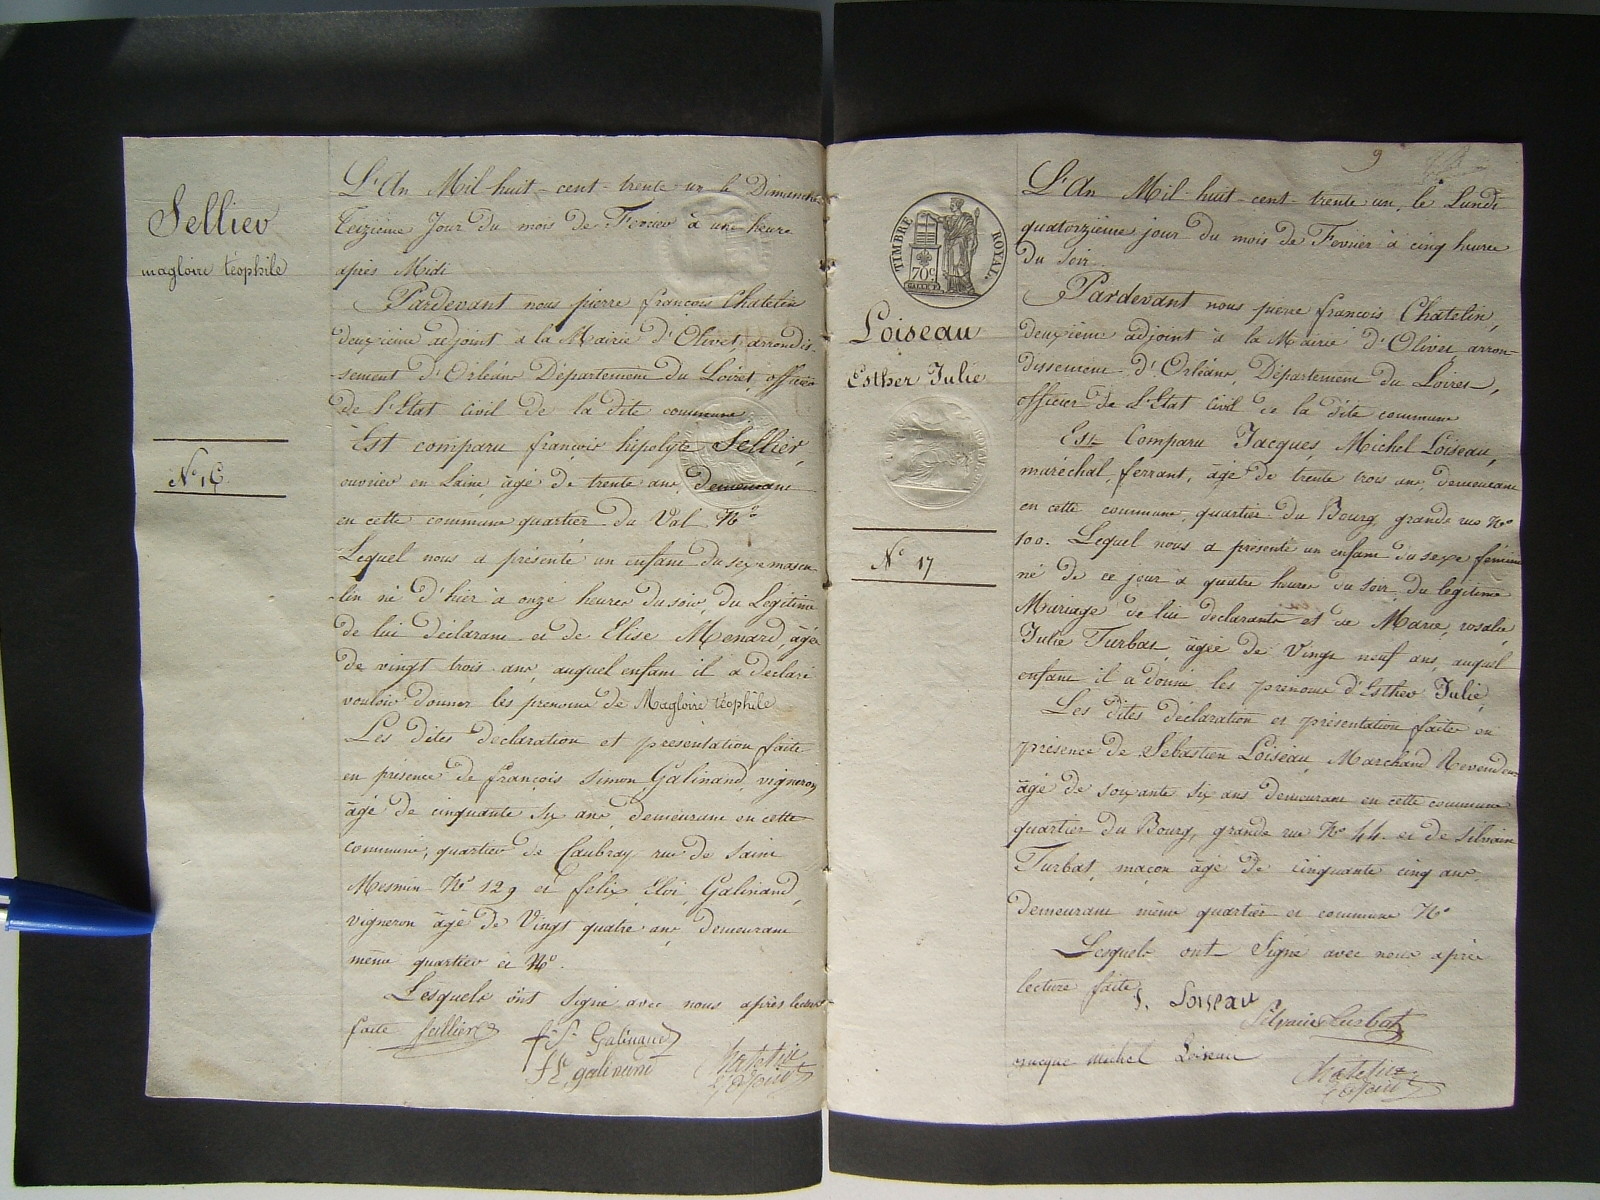 Sellier
magloire téophile
N° 16
L'An Mil-huit-cent-trente un le Dimanche
treizième Jour du mois de Fevrier à une heure
après Midi
Pardevant nous pierre françois Chatelin
deuxième adjoint à la Mairie d'Olivet, arrondis-
-sement d'Orléans Département du Loiret, officier
de l'Etat Civil de la dite commune
Est comparu françois hipolyte Sellier,
ouvrier en Laine, âgé de trente ans, demeurant
en cette commune quartier du Val N°
Lequel nous a présenté un enfant du sexe mascu-
-lin né d'hier à onze heures du soir, du Légitime
de lui déclarant et de Elise Menard, âgée
de vingt trois ans, auquel enfant il a déclaré
vouloir donner les prenoms de Magloire téophile
Les dites declaration et presentation faite
en présence de François Simon Galinand, vigneron
âgé de cinquante six ans, demeurant en cette
commune, quartier de Caubray rue de Saint
Mesmin N° 129 et félix Eloi, Galinand,
vigneron âgé de Vingt quatre ans, demeurant
même quartier et N°.
Lesquels ont signé avec nous après lecture
faite Sellier
f S Galinand
f E, galinand
Chatelin
adjoint
9
TIMBRE ROYAL.
70c
Loiseau
Esther Julie
N° 17
L'An Mil-huit-cent-trente un, le Lundi
quatorzième jour du mois de Fevrier à cinq heures
du Soir.
Pardevant nous pierre françois Chatelin,
deuxième adjoint à la Mairie d'Olivet arron-
dissement d'Orléans, Département du Loiret,
officier de L'Etat Civil de la dite commune
Est Comparu Jacques, Michel Loiseau,
maréchal, ferrant, âgé de trente trois ans, demeurant
en cette commune, quartier du Bourg, grande rue N°
100. Lequel nous a présenté un enfant du sexe féminin
né de ce jour à quatre heures du soir, du legitime
Mariage de lui declarante et de Marie, rosalie,
Julie Turbat, âgée de Vingt neuf ans, auquel
enfant il a donné les prénoms d'Esther Julie,
Les dites déclaration et présentation faites en
présence de Sébastien Loiseau, Marchand Revendeur
âgé de soixante six ans demeurant en cette commune
quartier du Bourg, grande rue N° 44. et de Silvain
Turbat, maçon âgé de cinquante cinq ans
demeurant même quartier et commune N°
Lesquels ont Signé avec nous après
lecture faite, S. Loiseau
Silvain turbat
jacque michel Loiseau
Chatelin
adjoint